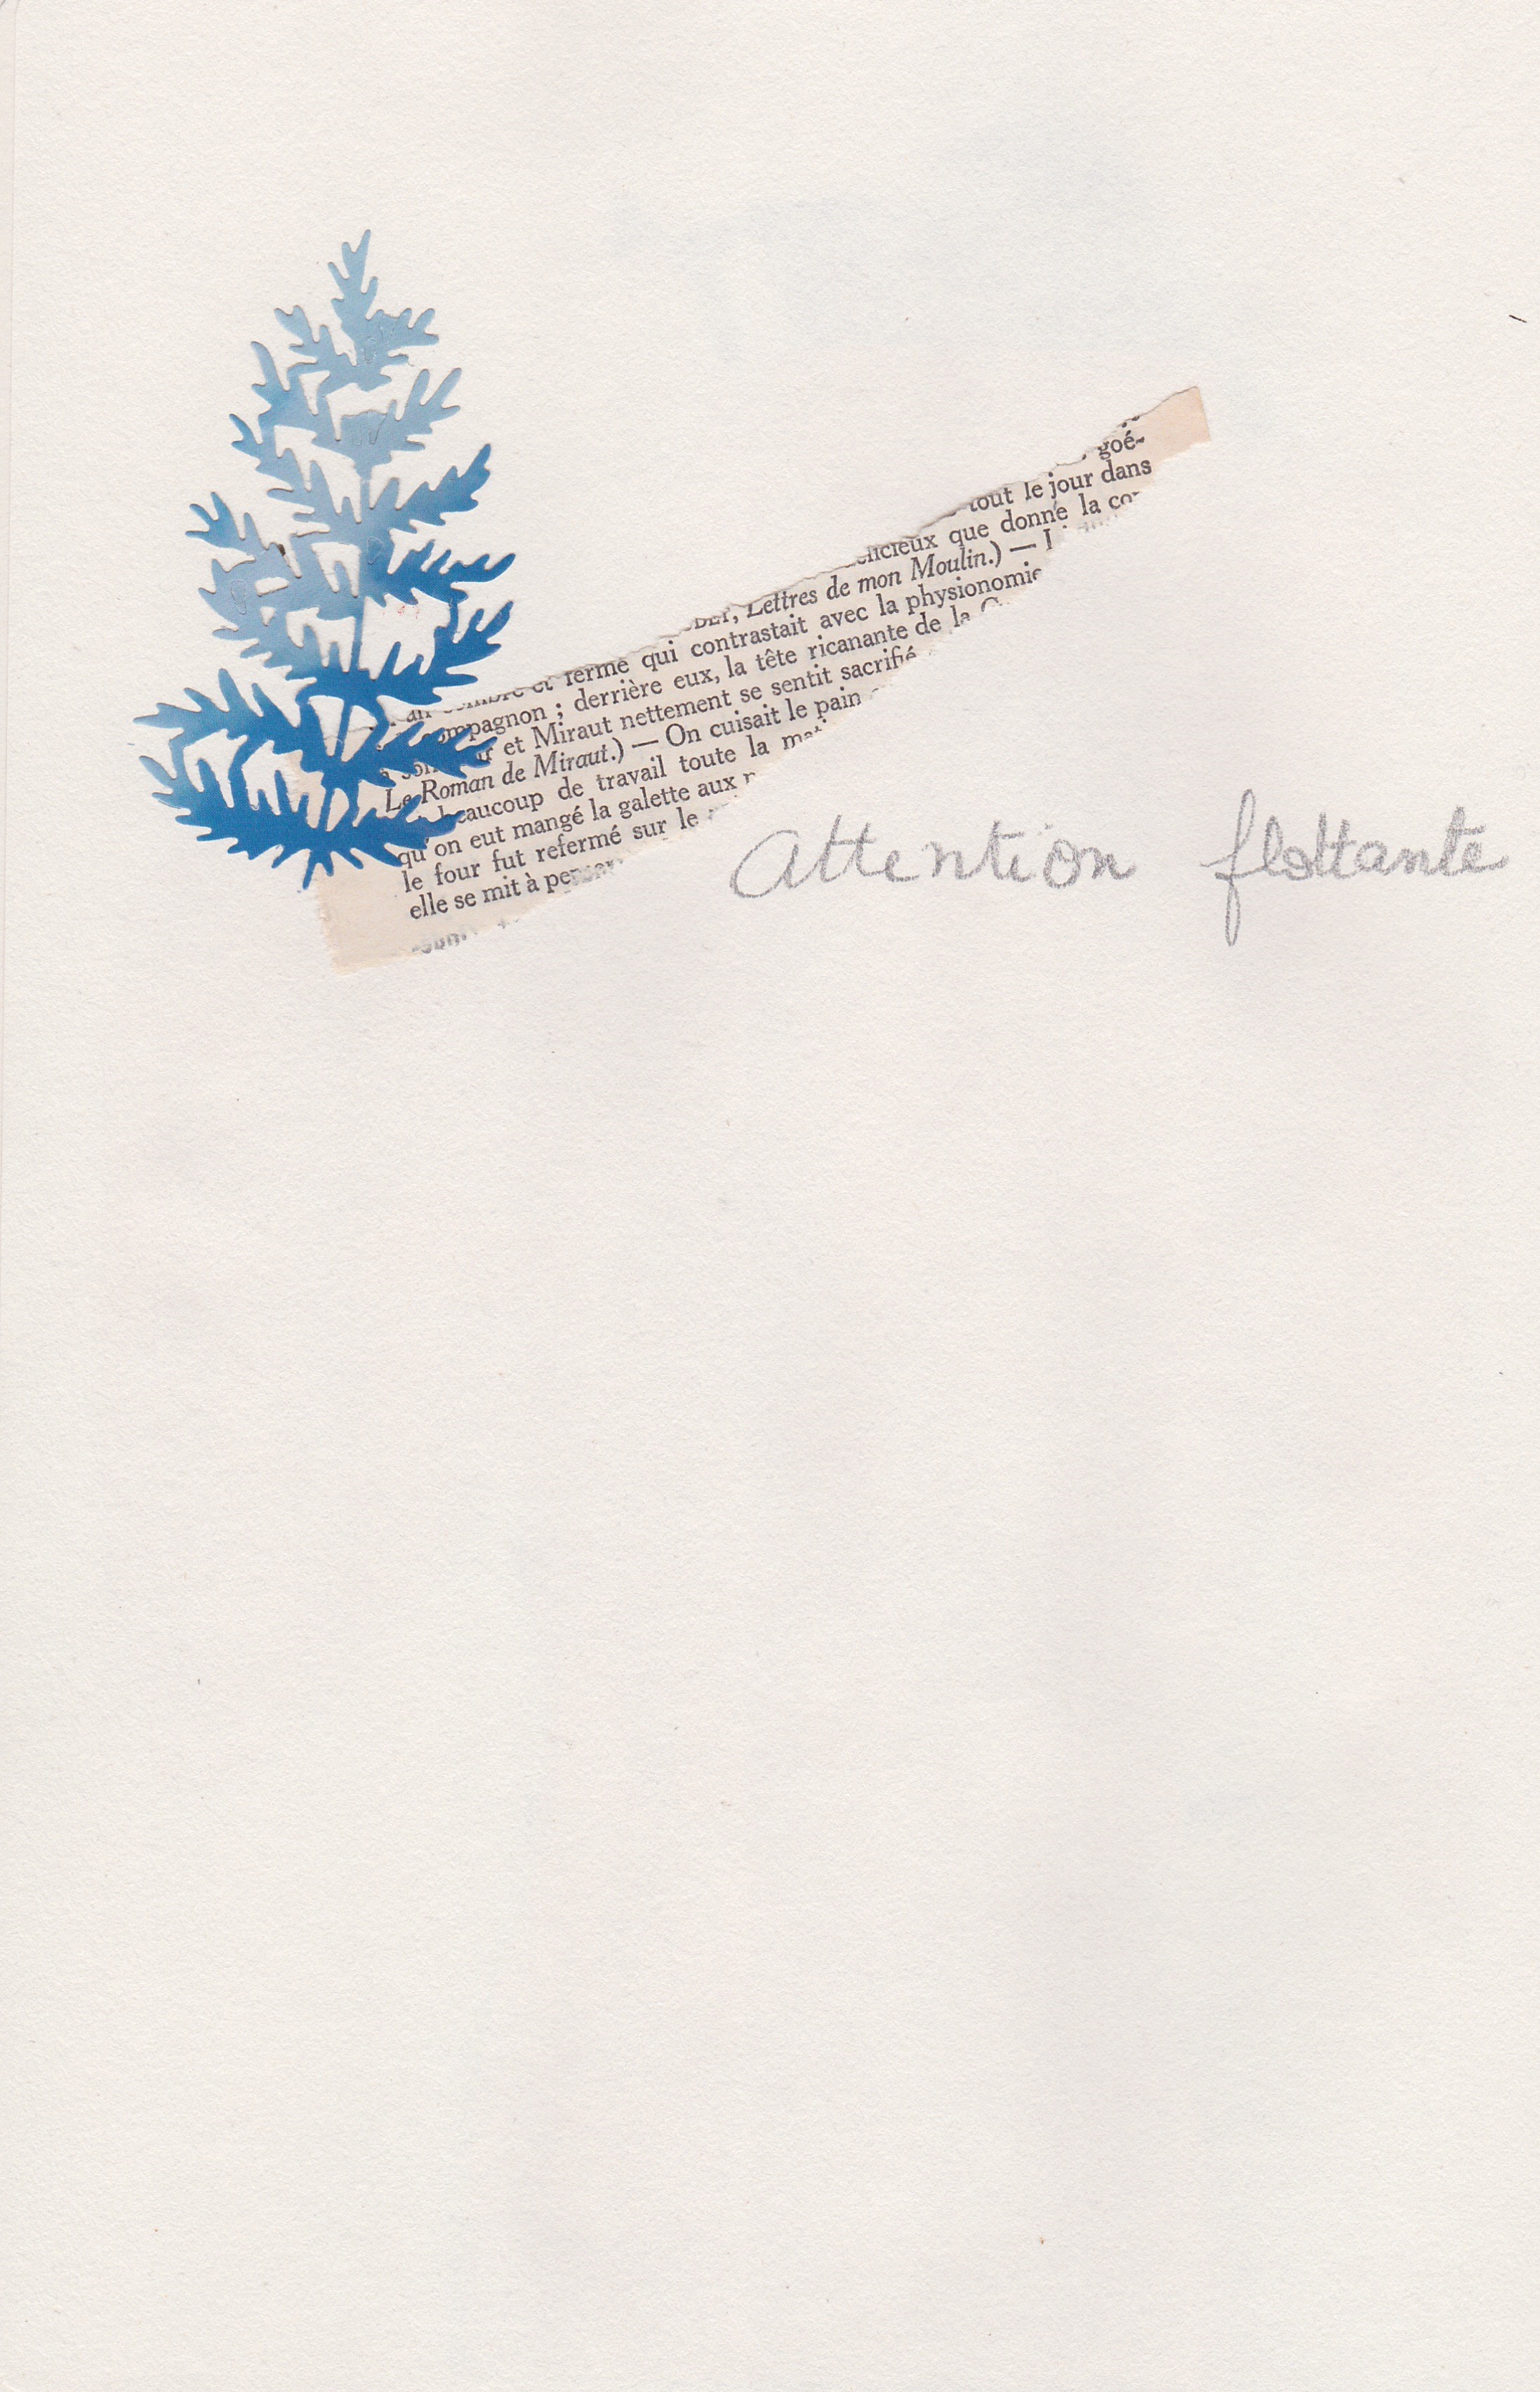 goé-
tout le jour dans
que donne la
Lettres de mon Moulin.) —
et ferme qui contrastait avec la physionomie
compagnon ; derrière eux, la tête ricanante de la
et Miraut nettement se sentit sacrifié
Le Roman de Miraut.) — On cuisait le pain
beaucoup de travail toute la
qu'on eut mangé la galette aux
le four fut refermé sur le
elle se mit à
attention flottante